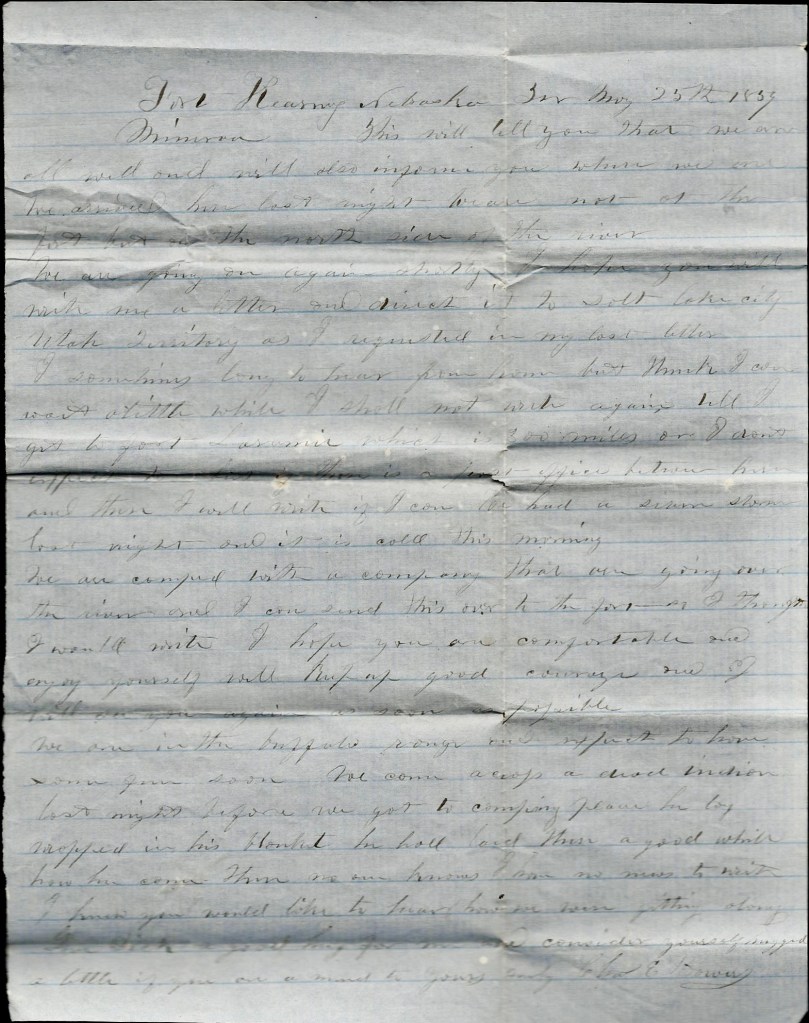 Fort Kearny Nebraska Ter May 25th 1859
Minerva This will tell you that we are
all well and will also inform you where we are
We arrived here last night We are not at the
fort but on the north side of the river
We are going on again shortly I hope you will
write me a letter and direct it to Salt Lake city
Utah Territory as I requested in my last letter
I sometimes long to hear from home but think I can
wait a little while I shall not write again till I
get to fort Laramie which is 300 miles or I dont
expect to but if there is a post office between here
and there I will write if I can We had a severe storm
last night and it is cold this morning
We are camped with a company that are going over
the river and I can send this over to the fort so I thought
I would write I hope you are comfortable and
enjoy yourself well Keep up good courage and I
will see you again as soon as possible
We are in the buffalo range and expect to have
some fun soon We came across a dead indian
last night before we got to camping place he lay
wrapped in his blanket he had laid there a good while
how he came there no one knows I have no news to write
I knew you would like to hear how we were getting along
a good hug for me and consider yourself hugged
a little if you are a mind to Yours only